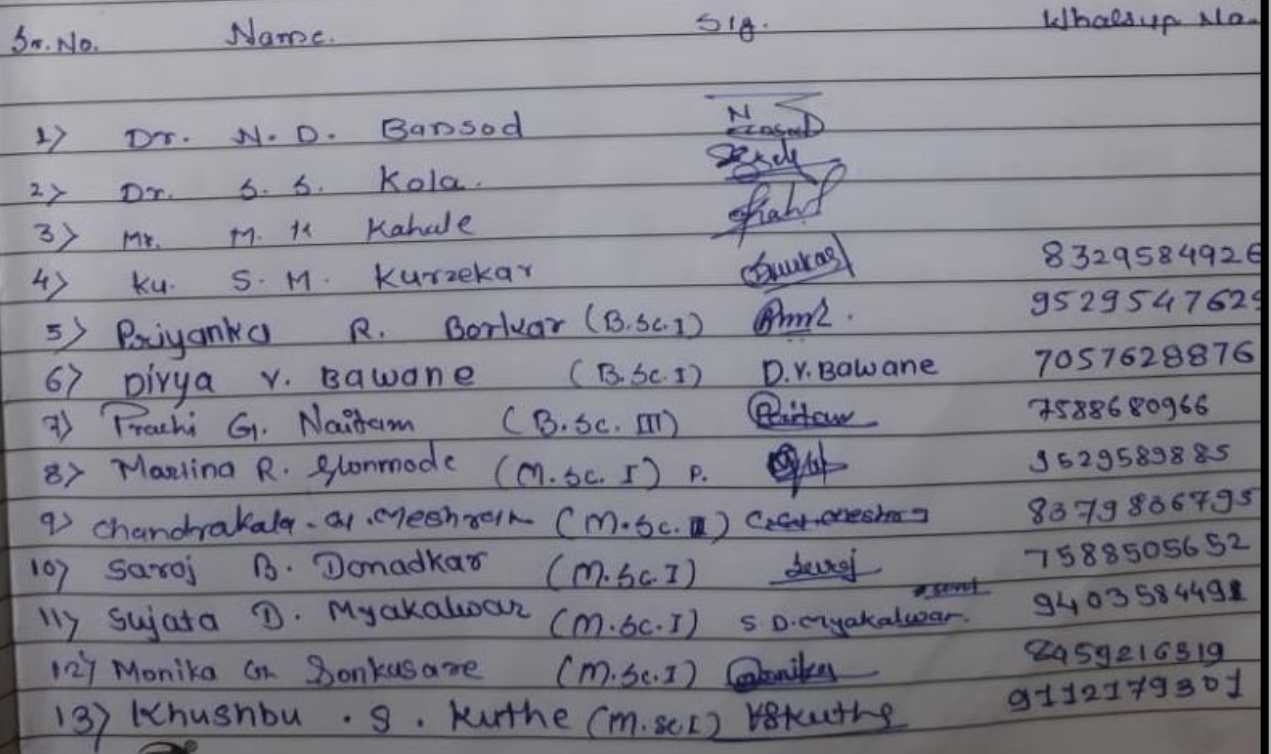 Sr. No. Name. Sig. Whatsup No.
1) Dr. N. D. Bansod
2) Dr. S. S. Kola.
3) Mr. M. K Kahale
4) Ku. S. M. Kurzekar 832958492
5) Priyanka R. Borkar (B.Sc.I) 952954762
6) Divya V. Bawane (B.Sc.I) D.V. Bawane 7057628876
7) Prachi G. Naitam (B.Sc. III) Naitam 7588680966
8) R. (M.Sc. I) P. 9529589885
9) Chandrakala. G. Meshram (M.Sc. ) 8379836795
10) Saroj B. Donadkar (M.Sc.I) Saroj 7588505652
11) Sujata D. Myakalwar (M.Sc.I) S. D. Myakalwar. 9403584491
12) Monika G. Sonkusare (M.Sc.I) Monika 8459216319
13) Khushbu . S . Kuthe (M.Sc.I) KSKuthe 9112179301